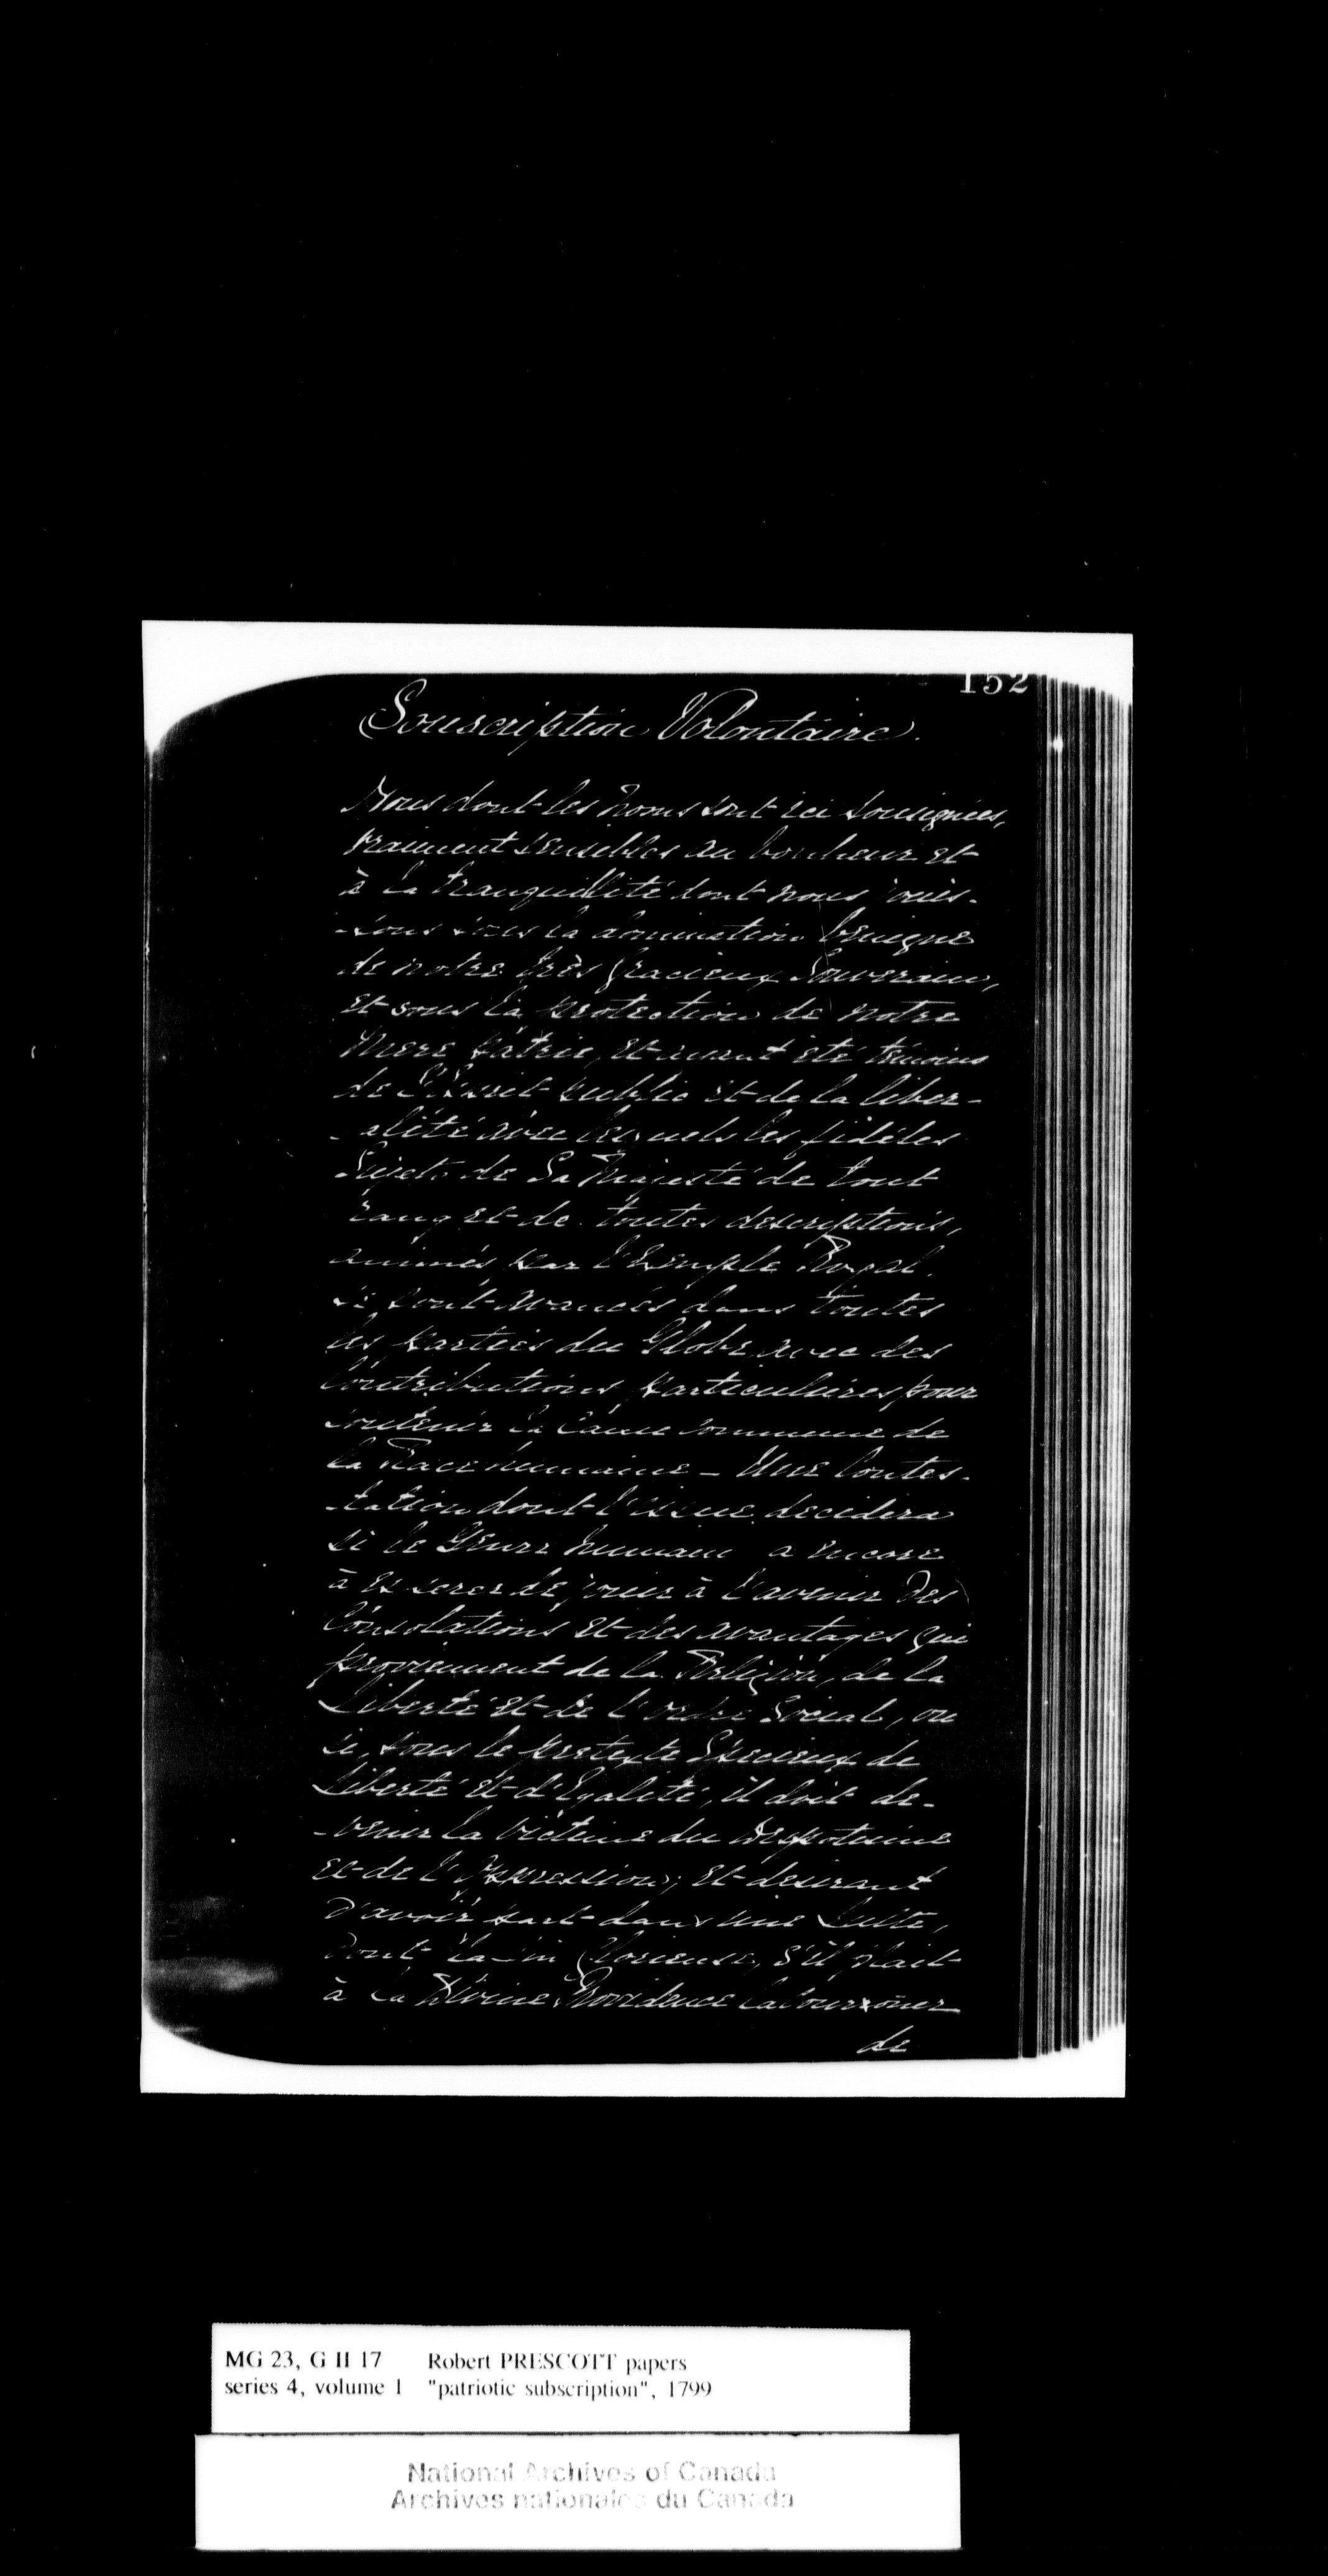 152
Souscription Volontaire.
Nous dont les Noms sont ici Sousignées,
vraiment sensibles au bonheur et
à la tranquillité dont nous jouis-
-sons sous la domination benigne
de notre très Gracieux Souverain,
et sous la protection de notre
Mere Patrie, et ayant été témoins
de l'Esprit public et de la liber-
-alité avec lesquels les fidéles
Sujets de Sa Majesté de tout
rang et de toutes descriptions,
animés par l'Exemple Royal,
se sont avancés dans toutes
les parties du Globe avec des
Contributions particulières, pour
soutenir la Cause Commune de
la Race humaine - Une Contes-
-tation dont l'issue decidera
si le Genre humain a encore
à esperer de jouir à l'avenir des
Consolations et des avantages qui
proviennent de la Religion, de la
Liberté et de l'ordre Social, ou
si, sous le pretexte Specieux de
Liberté et d'Egalité, il doit de-
-venir la victime du Despotisme
et de l'Oppression; et desirant
d'avoir part dans une Lutte,
dont la fin Glorieuse, s'il plait
à la Divine Providence la couronner
de
MG 23, G II 17 Robert PRESCOTT papers
series 4, volume 1 "patriotic subscription", 1799
National Archives of Canada
Archives nationales du Canada